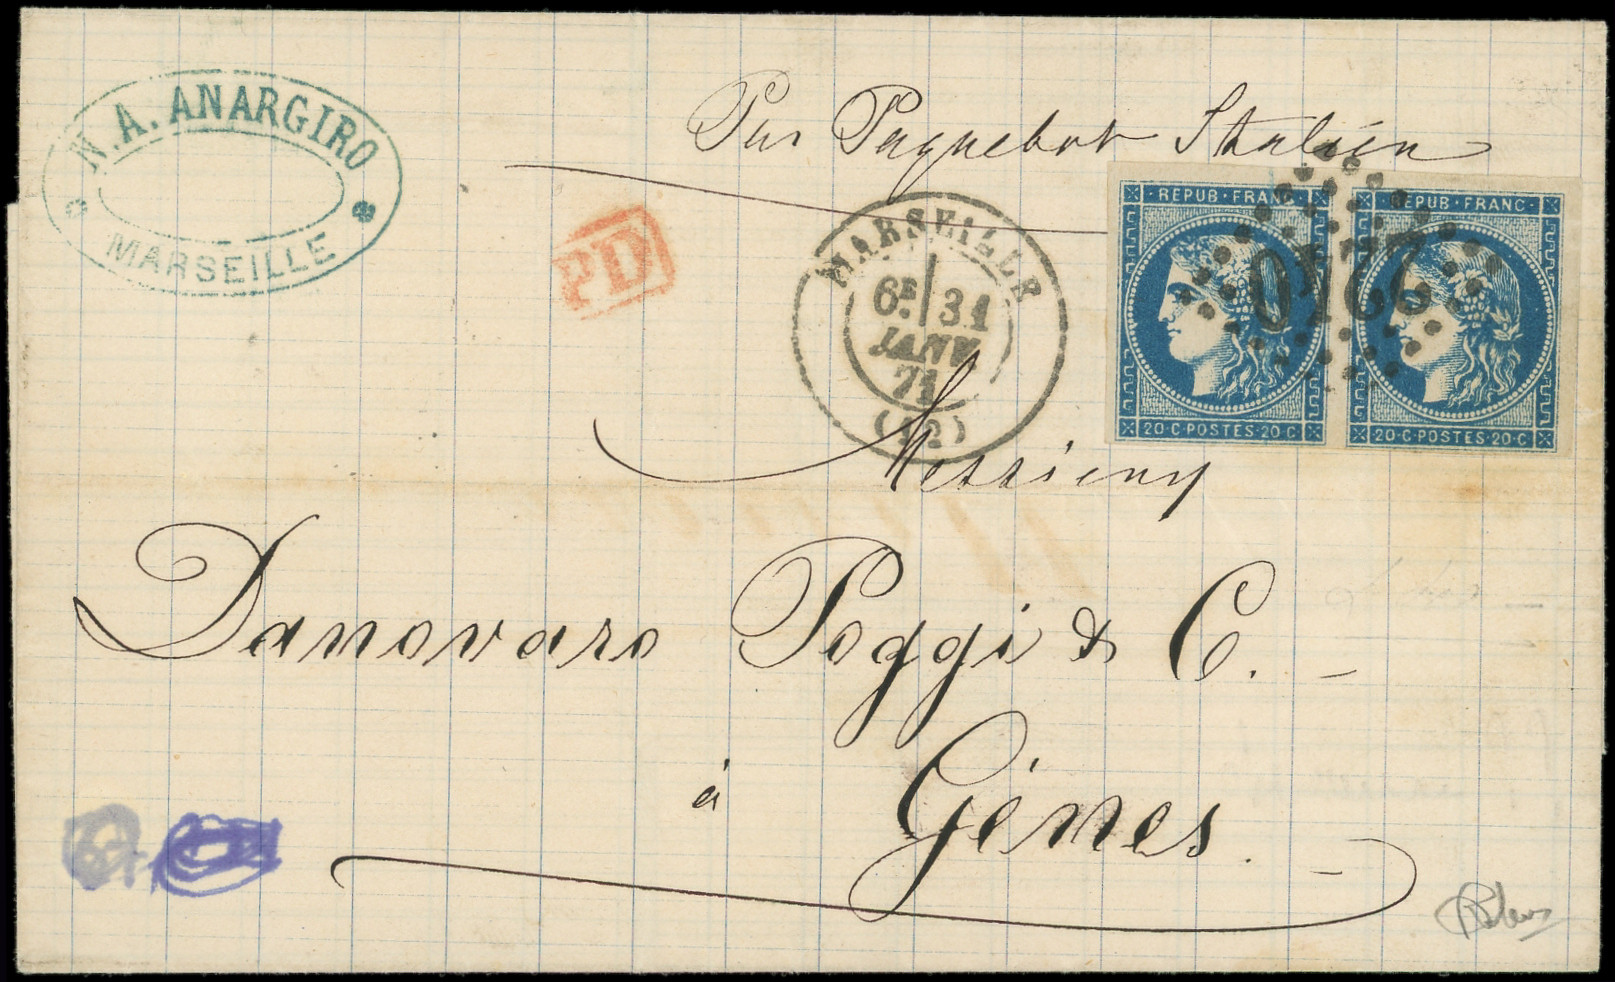 N.A. ANARGIRO
MARSEILLE
Par Paquebot Italien
PD
MARSEILLE
6E 31
JANV.
71
(12)
REPUB·FRANC·
20·C·POSTES·20·C
EPUB·FRANC·
20·C·POSTES·20·C
2240
Messieurs
Danovaro Poggi & C.
à Gênes.